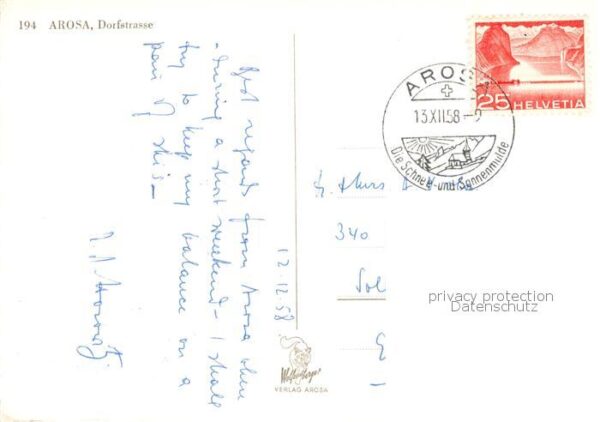 194 AROSA, Dorfstrasse
Best regards from Arosa where
during a short weekend - I shall
try to keep my balance on a
pair of skis -
12.12.58
AROSA
13.XII.58-
Die Schnee- und Sonnenmulde
25 HELVETIA
340
Sol
privacy protection
Datenschutz
VERLAG AROSA